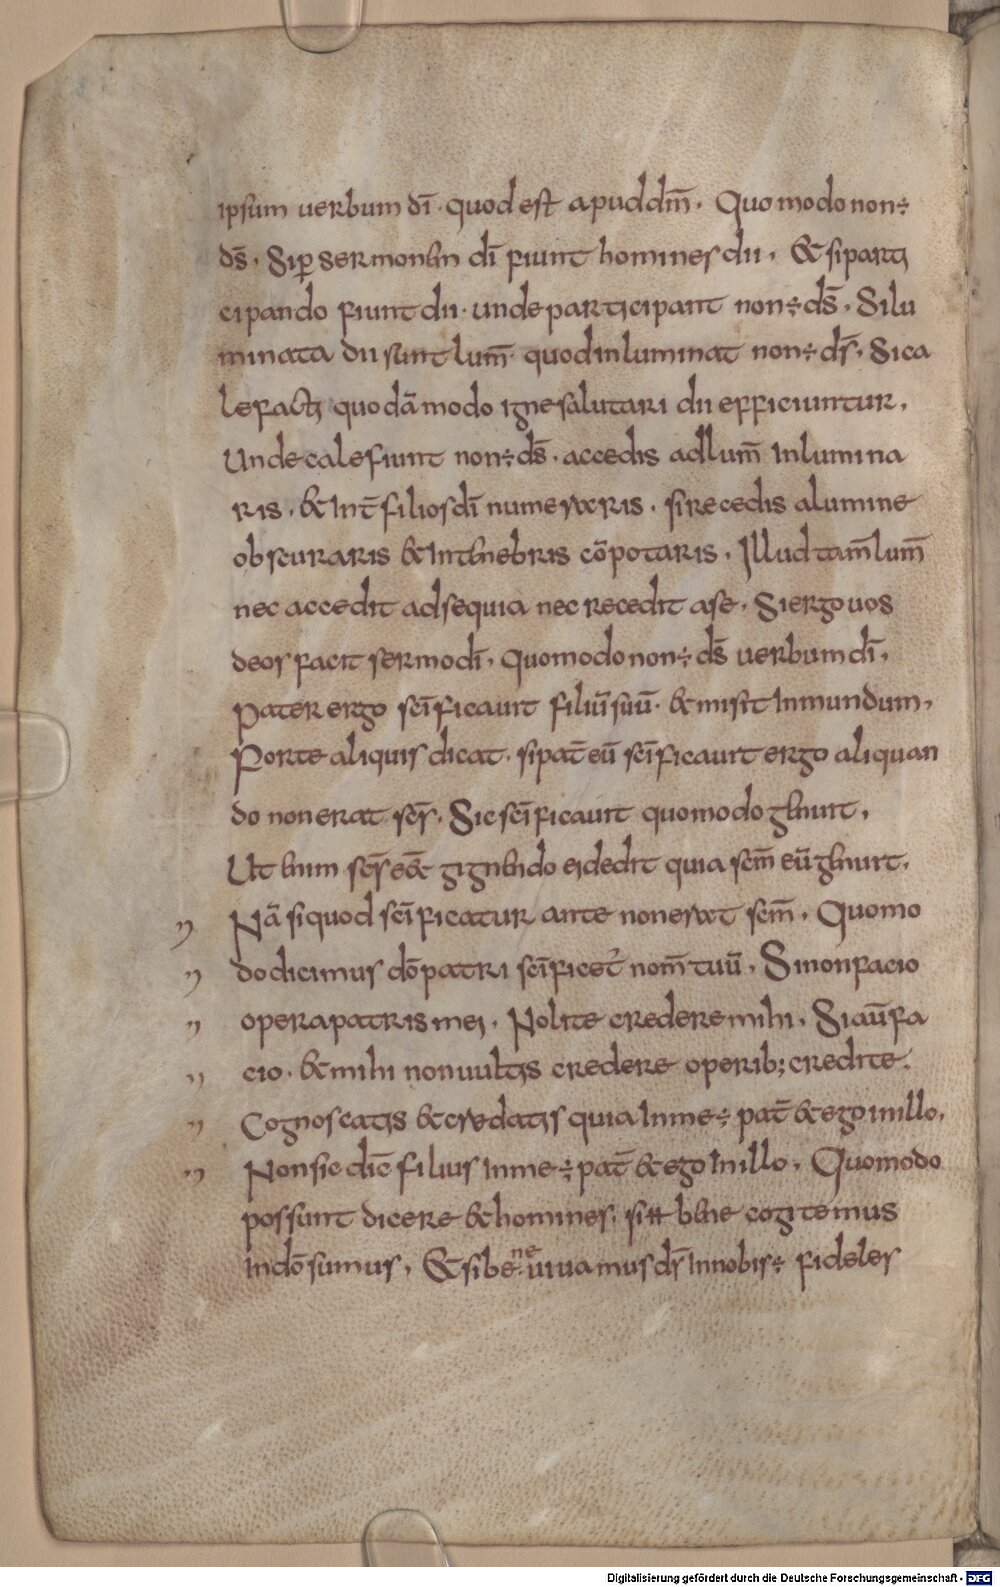 ipsum uerbum dī · quod est apud dm̄ · Quomodo non÷
ds̄ · Si ꝑ sermonem dī fiunt homines dii · & si parti
cipando fiunt dii · unde participant non÷ ds̄ · Si lu
minata dii sunt lum̄ · quod inluminat non÷ ds̄ · Si ca
lefacti quodā modo igne salutari dii efficiuntur ·
Unde calefiunt non÷ ds̄ · accedis ad lum̄ inlumina
ris · & int̄ filios dī numeraris · si recedis a lumine
obscuraris & in tenebris cōpotaris · Illud tam̄ lum̄
nec accedit ad se quia nec recedit a se · Si ergo uos
deos facit sermo dī · quomodo non÷ ds̄ uerbum dī ·
Pater ergo sc̄ificauit filiū suū · & misit in mundum ·
Forte aliquis dicat · si pat̄ eū sc̄ificauit ergo aliquan
do non erat sc̄s · Sic sc̄ificauit quomodo genuit ·
Ut enim sc̄s ess& gignendo ei dedit quia sc̄m eū genuit ·
Nā si quod sc̄ificatur ante non erat sc̄m · Quomo
do dicimus dō patri sc̄ificet̄ nom̄ tuū · Si non facio
opera patris mei · Nolite credere mihi · Si aū fa
cio · & mihi non uultis credere operib; credite ·
Cognoscatis & credatis quia in me÷ pat̄ & ego in illo ·
Non sic dic̄ filius in me÷ pat̄ & ego in illo · Quomodo
possunt dicere & homines · si bene cogitemus
in dō sumus · & si bene uiuamus ds̄ in nobis÷ fideles
Digitalisierung gefördert durch die Deutsche Forschungsgemeinschaft - DFG